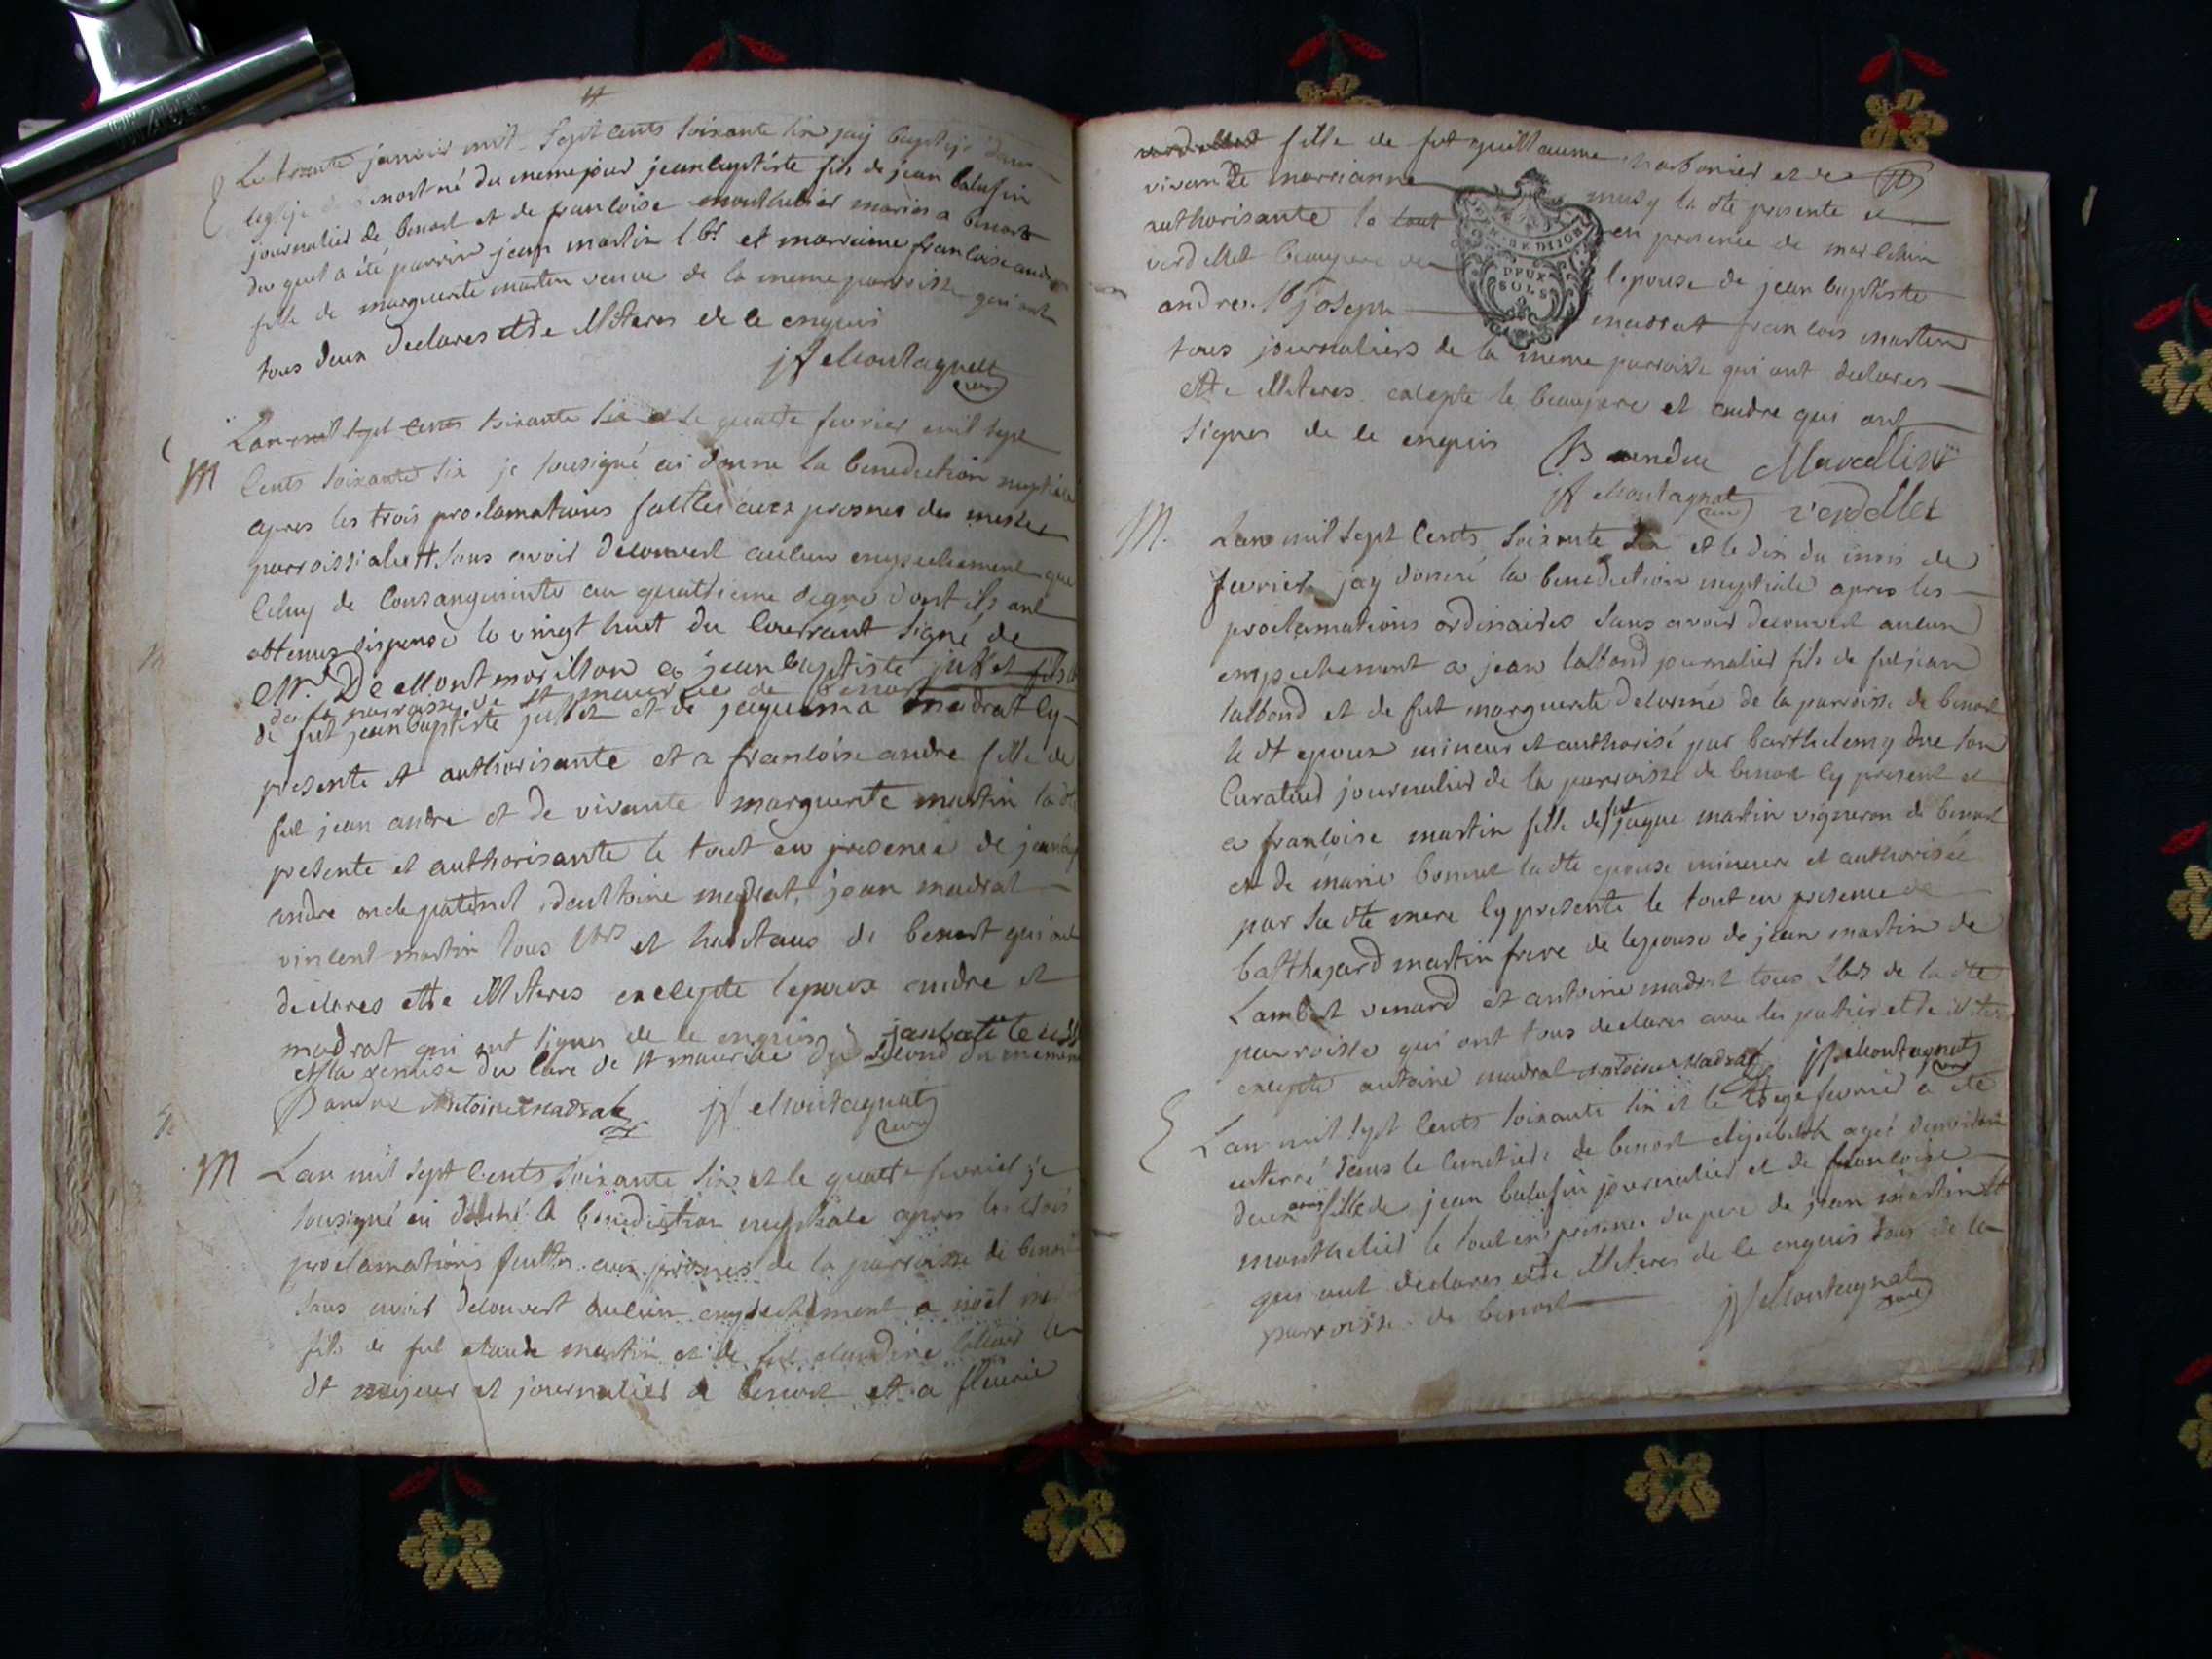 Le trente janvier mil Sept cents soixante six jay baptisé dans
leglise de benost né du meme jour jean baptiste fils de jean balufin
journalier de benost et de francoise monthelier mariés a benost
du quel a été parrin jean martin lbr et marraine francoise andre
fille de marguerite martin veuve de la meme parroisse qui ont
tous deux declarés etre illiteres de ce enquis
jf Montagnat
curé
M
Lan mil sept cents soixante six et le quatre fevrier mil sept
cents soixante six je sousigné ai donne la benediction nuptiale
apres les trois proclamations faittes aux prosnes des messes
parroissiales sans avoir decouvert aucun empechement que
celuy de consanguinite au quatrieme degré dont ils ont
obtenus dispense le vingt huit du courrant signé de
Mr. De Montmorillon a jean baptiste jusset fils
de la parroisse de st maurice de benost
de fut jean baptiste jusset et de jaquema madrat cy
presente et authorisante et a francoise andre fille de
fut jean andre et de vivante marguerite martin la dte
presente et authorisante le tout en presence de jean
andre oncle paternel danthoine madrat, jean madrat
vincent martin tous lbrs et habitans de benost qui ont
declares etre illiteres excepte lepoux andre et
madrat qui ont signes de ce enquis
et la remise du cure de st maurice du second du meme
B andre Antoine Madrat jf Montagnat
curé
M
Lan mil sept cents soixante six et le quatre fevrier je
sousigné ai donné la benediction nuptiale apres les trois
proclamations faittes aux prosnes de la parroisse de benost
sans avoir decouvert aucun empechement a noël
fils de fut claude martin et de fut claudine
dt majeur et journalier de benost et a fleurie
verdellet fille de fut guillaume et de
vivante marianne musy la dte presente et
authorisante le tout en presence de marcelin
verdellet beaupere de lepouse de jean baptiste
andre. joseph madrat francois martin
GEN. DE DIJON
DEUX
SOLS
tous journaliers de la meme parroisse qui ont declares
etre illiteres excepte le beaupere et andre qui ont
signes de ce enquis B andre Marcellin
jf Montagnat verdellet
curé
M.
Lan mil sept cents soixante six et le dix du mois de
fevrier jay donné la benediction nuptiale apres les
proclamations ordinaires sans avoir decouvert aucun
empechement a jean lalbond journalier fils de fut jean
lalbond et de fut marguerite delorme de la parroisse de benost
le dt epoux mineur et authorisé par barthelemy son
curateur journalier de la parroisse de benost cy present et
a francoise martin fille de fut jaque martin vigneron de benost
et de marie bonnet la dte epouse mineure et authorisée
par sa dte mere cy presente le tout en presence de
balthazard martin frere de lepouse de jean martin de
Lambert venard et antoine madrat tous lbrs de la dte
parroisse qui ont tous declares avec les parties etre illiteres
excepte antoine madrat Antoine Madrat jf Montagnat
curé
Lan mil sept cents soixante six et le treze fevrier a été
enterré dans le cimetiere de benost elizabeth agée denviron
deux ans fille de jean balufin journalier et de francoise
monthelier le tout en presence du pere de jean martin
qui ont declares etre illiteres de ce enquis tous de la
parroisse de benost jf Montagnat
curé